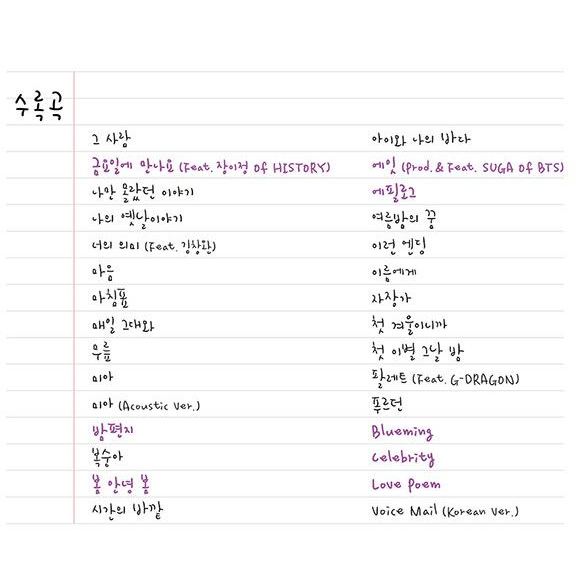 수록곡
그 사람
금요일에 만나요 (Feat. 장이정 Of HISTORY)
나만 몰랐던 이야기
나의 옛날이야기
너의 의미 (Feat. 김창완)
마음
마침표
매일 그대와
무릎
미아
미아 (Acoustic Ver.)
밤편지
복숭아
봄 안녕 봄
시간의 바깥
아이와 나의 바다
에잇 (Prod. & Feat. SUGA Of BTS)
에필로그
여름밤의 꿈
이런 엔딩
이름에게
자장가
첫 겨울이니까
첫 이별 그날 밤
팔레트 (Feat. G-DRAGON)
푸르던
Blueming
Celebrity
Love Poem
Voice Mail (Korean Ver.)